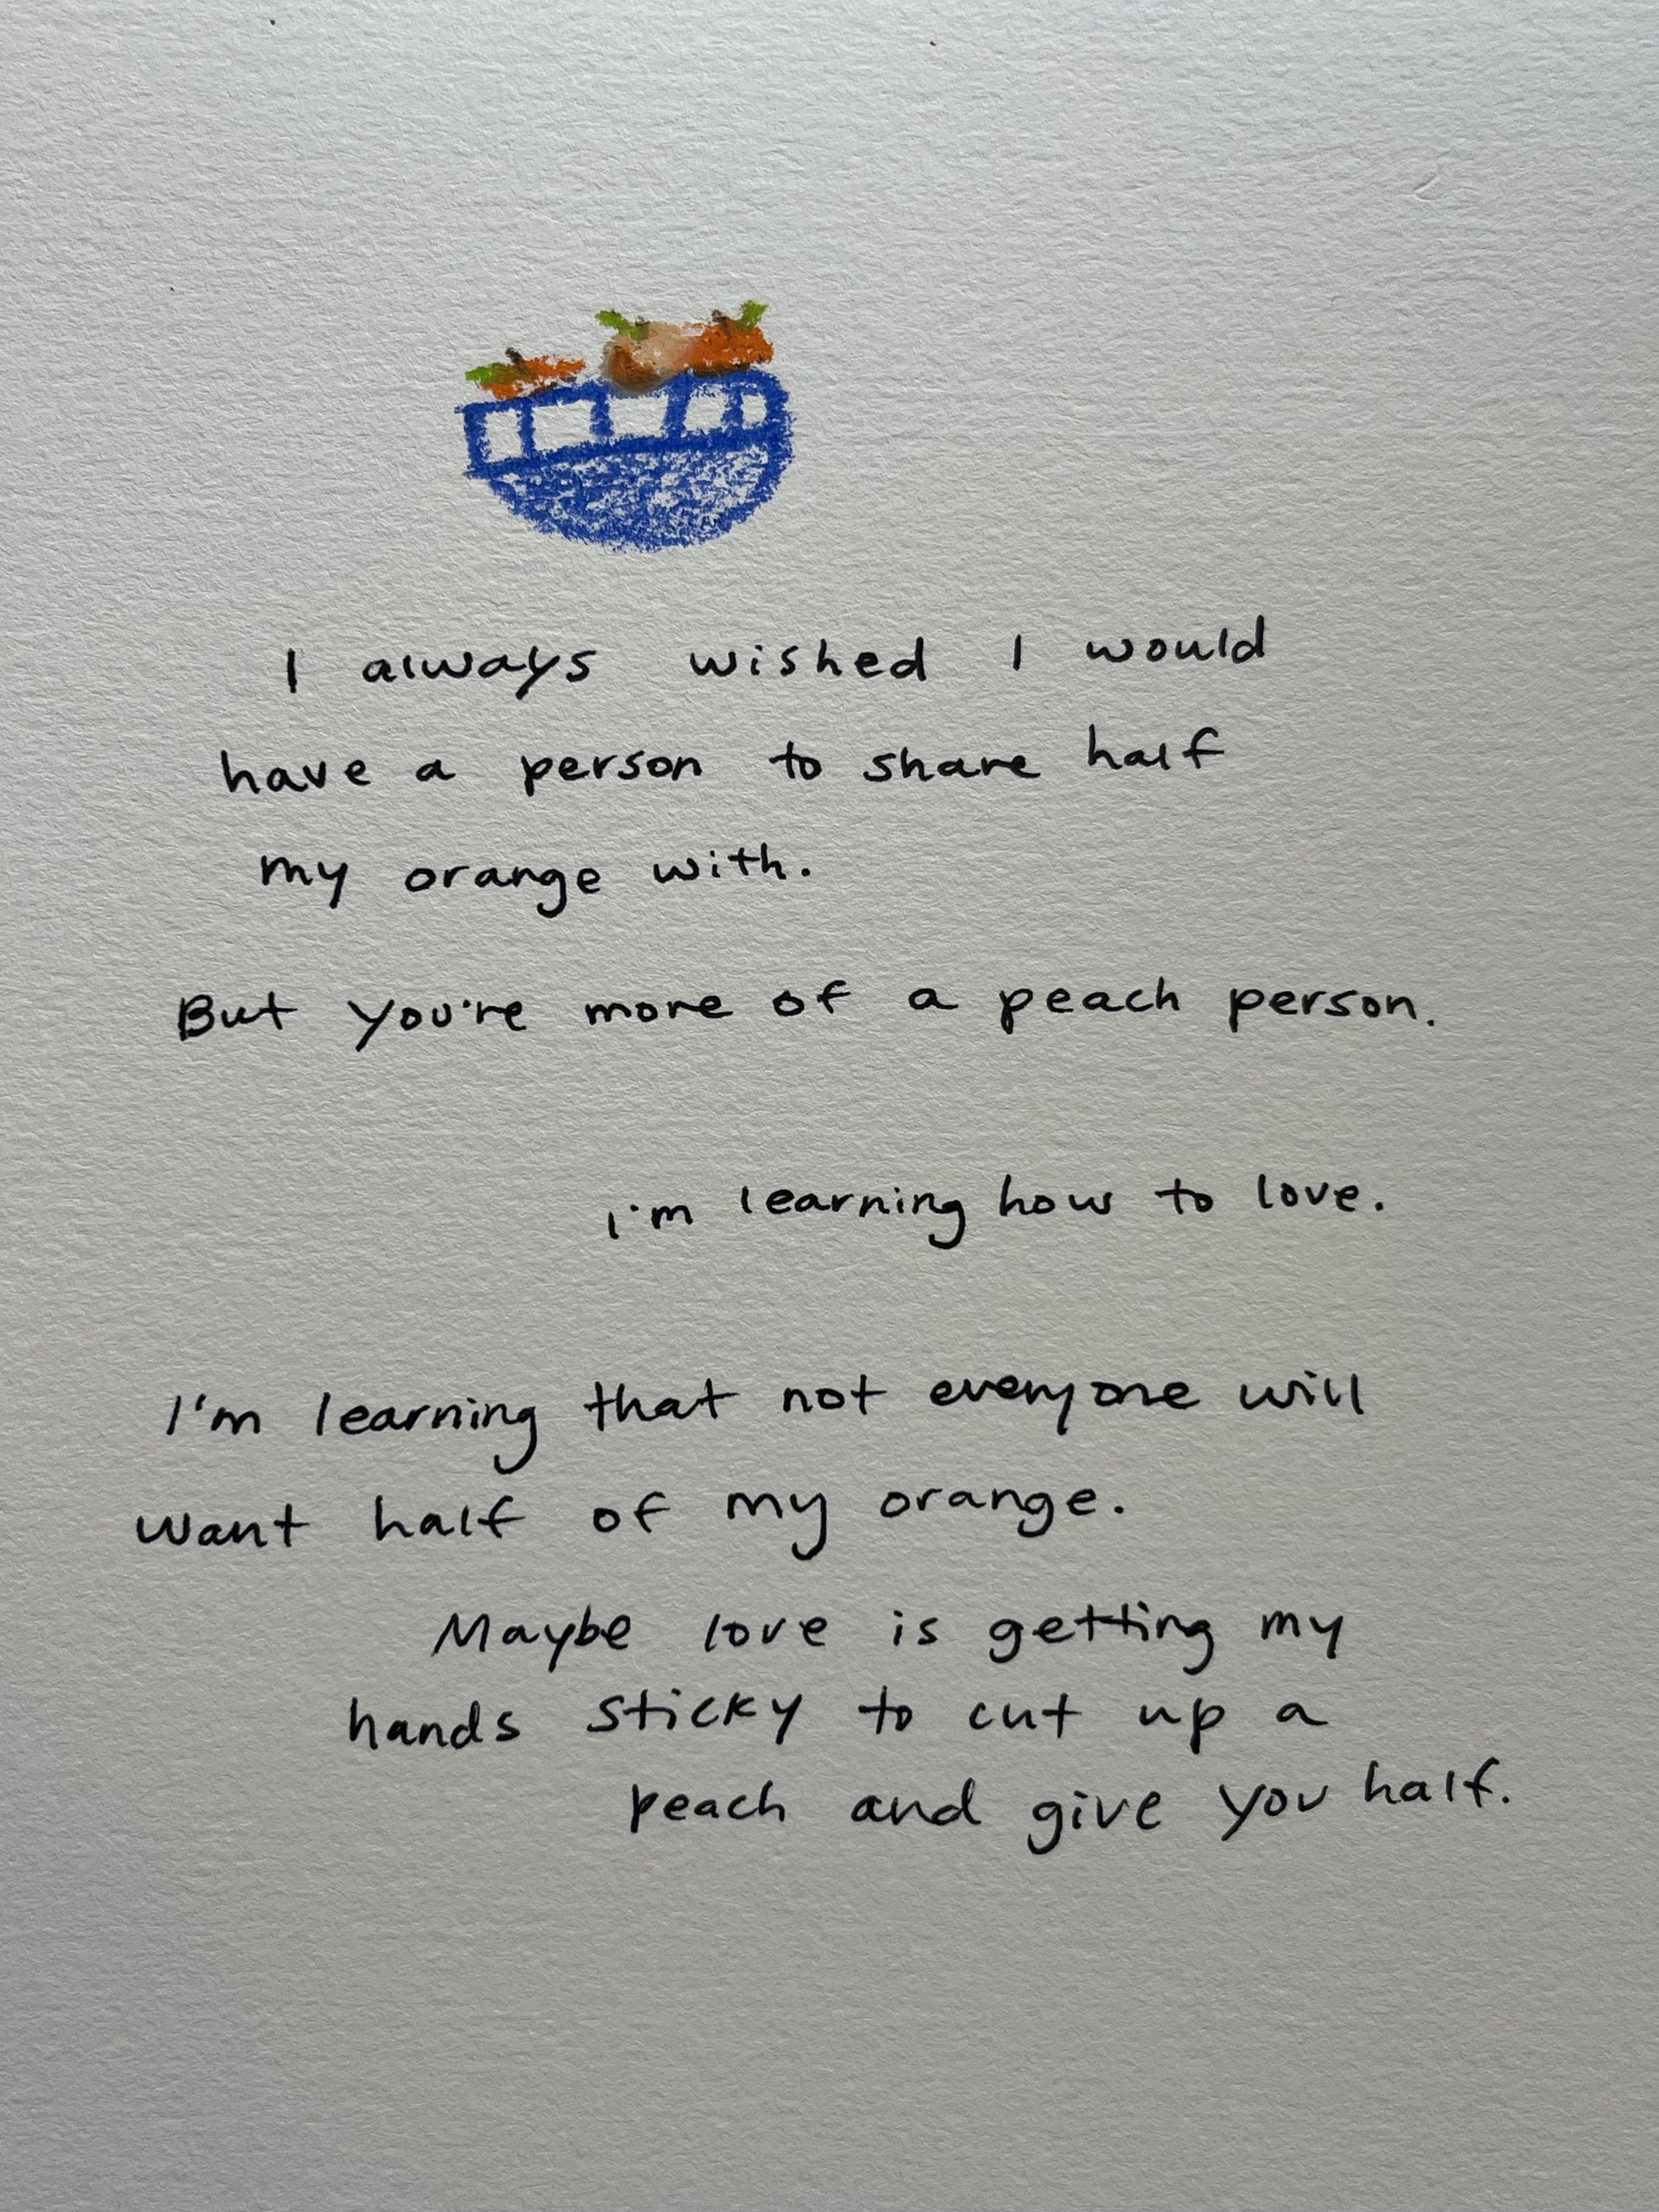 I always wished I would
have a person to share half
my orange with.
But you're more of a peach person.
i'm learning how to love.
I'm learning that not everyone will
want half of my orange.
Maybe love is getting my
hands sticky to cut up a
peach and give you half.